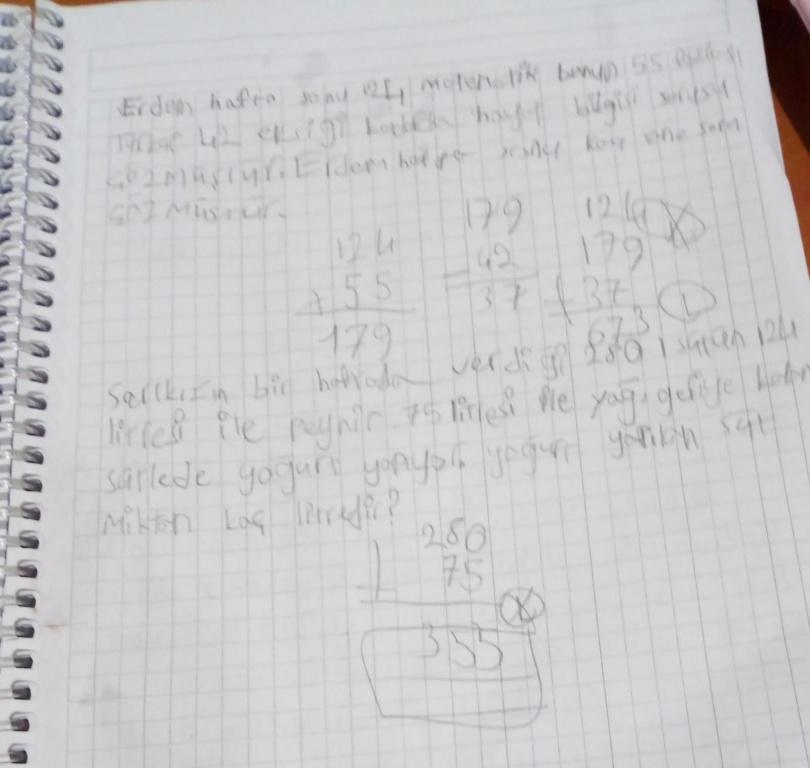 Erdem hafta sonu 124 matematik bunun 55
42 eksiği kadar hayat bilgisi sorusu
çözmüştür. Erdem hafta sonu kaç tane soru
çözmüştür.
124
+ 55
179
179
- 42
37
124
179
+ 37
673
Sarıkızın bir haftada verdiği 280 l sütün 124
litresi ile peynir 75 litresi ile yağ, geriye kalan
sütlede yogurt yapıyor. yogurt yapılan süt
miktarı kaç litredir?
280
75
355